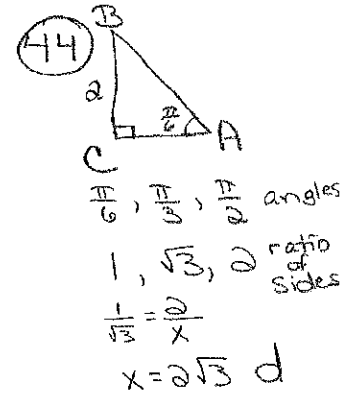 44
B
2
π/6
A
C
π/6, π/3, π/2 angles
1, √3, 2 ratio of sides
1/√3 = 2/x
x = 2√3 d